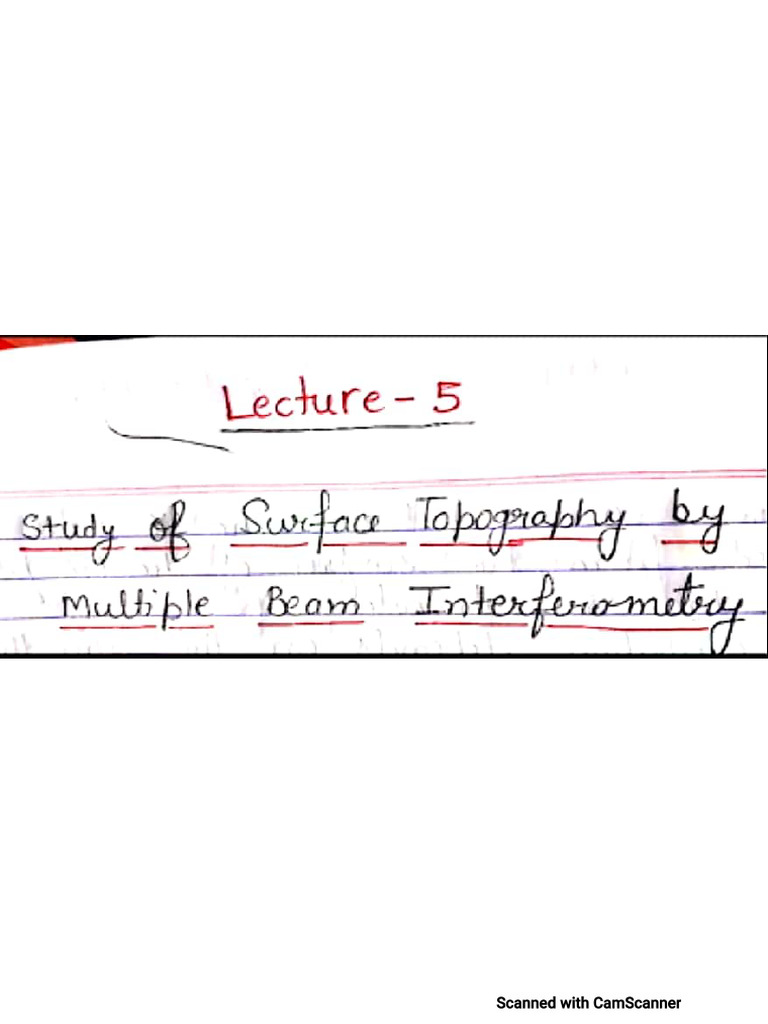 Lecture - 5
Study of Surface Topography by
Multiple Beam Interferometry
Scanned with CamScanner